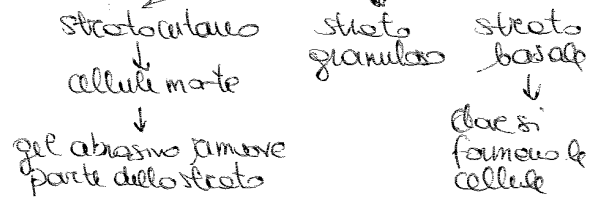 strato cutaneo
cellule morte
gel abrasivo rimuove
parte dello strato
strato
granuloso
strato
basale
dove si
formano le
cellule